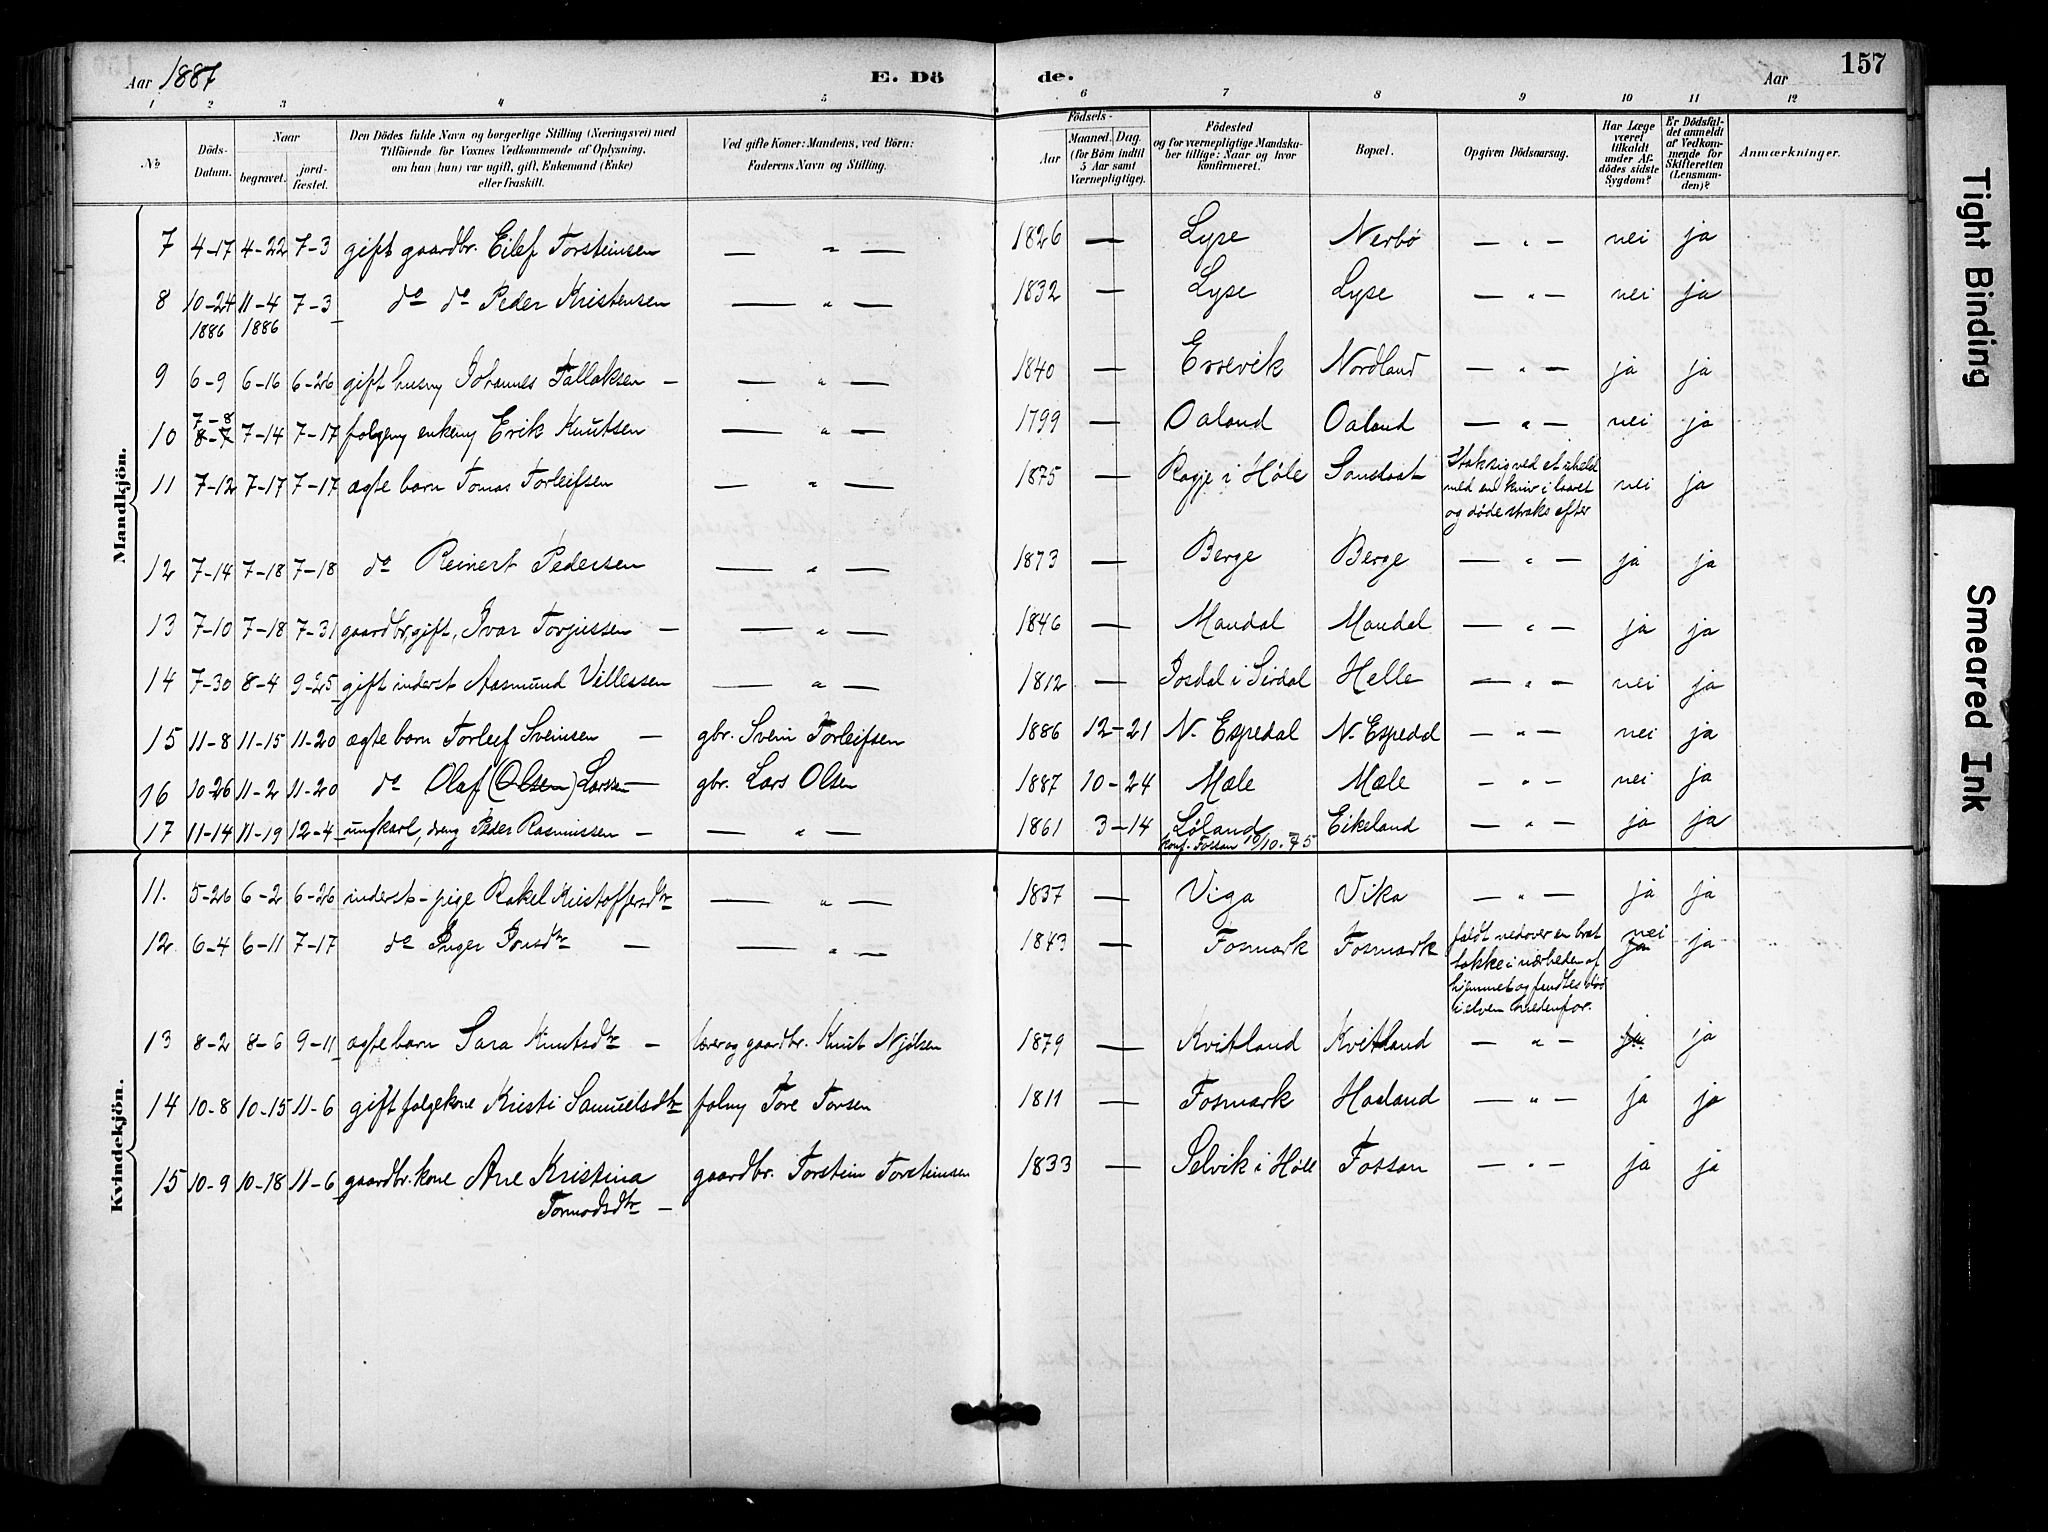 Aar 1887
E. Dö
de.
Aar
157
1 2 3 4 5 6 7 8 9 10 11 12
No
Döds-Datum.
Naar
begravet.
jord-fæstet.
Den Dödes fulde Navn og borgerlige Stilling (Næringsvei) med
Tilföiende for Voxnes Vedkommende af Oplysning,
om han (hun) var ugift, gift, Enkemand (Enke)
eller fraskilt.
Ved gifte Koner: Mandens, ved Börn:
Faderens Navn og Stilling.
Födsels-
Aar
Maaned. Dag.
(for Börn indtil
5 Aar samt
Værnepligtige).
Födested
og for værnepligtige Mandska-
ber tillige: Naar og hvor
konfirmeret.
Bopæl.
Opgiven Dödsaarsag.
Har Læge
været
tilkaldt
under Af-
dödes sidste
Sygdom?
Er Dödsfal-
det anmeldt
af Vedkom-
mende for
Skifteretten
(Lensman-
den)?
Anmærkninger.
Mandkjön.
7 4-17 4-22 7-3 gift gaardbr. Eilef Torsteinsen — " — 1826 — Lyse Nerbö — " — nei ja
8 10-24 11-4 7-3 do do Peder Kristensen — " — 1832 — Lyse Lyse — " — nei ja
1886 1886
9 6-9 6-16 6-26 gift husm Johannes Tallaksen — — " — 1840 — Ersevik Nordland — " — ja ja
7-8
10 8-7 7-14 7-17 folgem enkem Erik Knutsen — " — 1799 — Oaland Oaland — " — nei ja
11 7-12 7-17 7-17 ægte barn Tomas Torleifsen — " — 1875 — Ragje i Høle Sandsaat Stak sig ved et uheld nei ja
med en kniv i laaret
og døde straks efter
12 7-14 7-18 7-18 do Reinert Pedersen — " — 1873 — Berge Berge — " — ja ja
13 7-10 7-18 7-31 gaardbr, gift, Ivar Torjussen — — " — 1846 — Mandal Mandal — " — ja ja
14 7-30 8-4 9-25 gift inderst Aasmund Villessen — " — 1812 — Josdal i Sirdal Helle — " — nei ja
15 11-8 11-15 11-20 ægte barn Torleif Sveinsen — gbr. Svein Torleifsen 1886 12-21 N. Espedal N. Espedal — " — nei ja
16 10-26 11-2 11-20 do Olaf (Olsen) Larsen — gbr. Lars Olsen 1887 10-24 Mæle Mæle - " — nei ja
17 11-14 11-19 12-4 ungkarl, dreng Peder Rasmussen — — " — 1861 3-14 Løland Eikeland — " — ja ja
konf. Fossan 10/10. 75
Kvindekjön.
11. 5-26 6-2 6-26 inderst-pige Rakel Kristoffersdtr — " — 1837 — Viga Vika — " — ja ja
12 6-4 6-11 7-17 do Inger Jonsdtr — — " — 1843 — Fosmark Fosmark faldt nedover en brat nei ja
bakke i nærheden af ja
hjemmet og fandtes død
i elven nedenfor.
13 8-2 8-6 9-11 ægte barn Sara Knutsdtr — lærer og gaardbr. Knut Njølsen 1879 — Kvitland Kvitland — " — ja ja
14 10-8 10-15 11-6 gift folgekone Kristi Samuelsdtr folgm Tore Torsen 1811 — Fosmark Haaland — " — ja ja
15 10-9 10-18 11-6 gaardbr. kone Ane Kristina gaardbr. Torstein Torsteinsen 1833 — Selvik i Høle Fossan — " — ja ja
Tormodsdtr —
Tight Binding
Smeared Ink